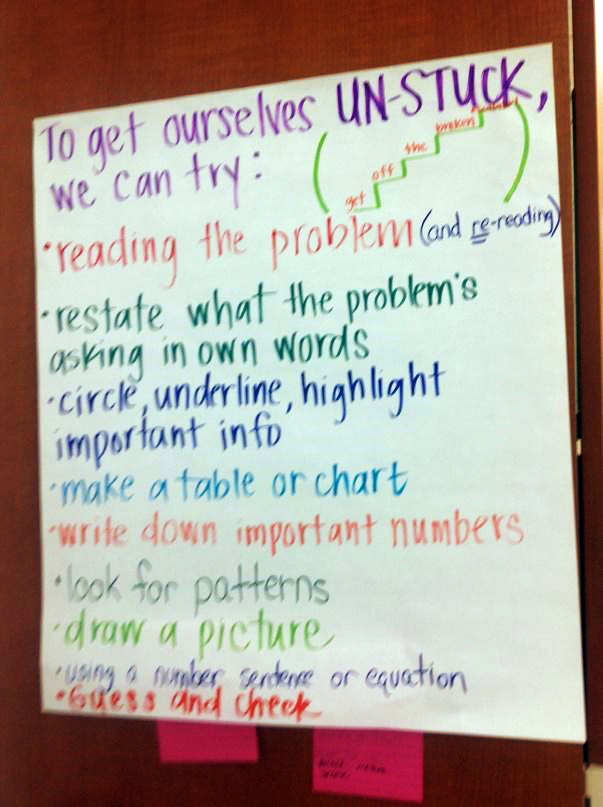 To get ourselves UN-STUCK,
we can try:
get off the broken
• reading the problem (and re-reading)
• restate what the problem's
asking in own words
• circle, underline, highlight
important info
• make a table or chart
• write down important numbers
• look for patterns
• draw a picture
• using a number sentence or equation
• Guess and check